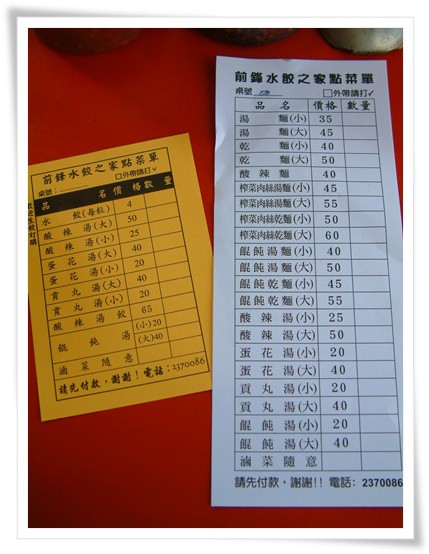 前鋒水餃之家點菜單
桌號： 口外帶請打✓
品 名 價格 數量
水 餃(每粒) 4
酸辣湯(大) 50
酸辣湯(小) 25
蛋花湯(大) 40
蛋花湯(小) 20
貢丸湯(大) 40
貢丸湯(小) 20
酸辣湯餃 65
餛飩湯 (小)20
(大)40
滷菜隨意
請先付款，謝謝！電話：2370086
前鋒水餃之家點菜單
桌號： 口外帶請打✓
品 名 價格 數量
湯 麵(小) 35
湯 麵(大) 45
乾 麵(小) 40
乾 麵(大) 50
酸辣麵 40
榨菜肉絲湯麵(小) 45
榨菜肉絲湯麵(大) 55
榨菜肉絲乾麵(小) 50
榨菜肉絲乾麵(大) 60
餛飩湯麵(小) 40
餛飩湯麵(大) 50
餛飩乾麵(小) 45
餛飩乾麵(大) 55
酸辣湯(小) 25
酸辣湯(大) 50
蛋花湯(小) 20
蛋花湯(大) 40
貢丸湯(小) 20
貢丸湯(大) 40
餛飩湯(小) 20
餛飩湯(大) 40
滷菜隨意
請先付款，謝謝!! 電話: 2370086